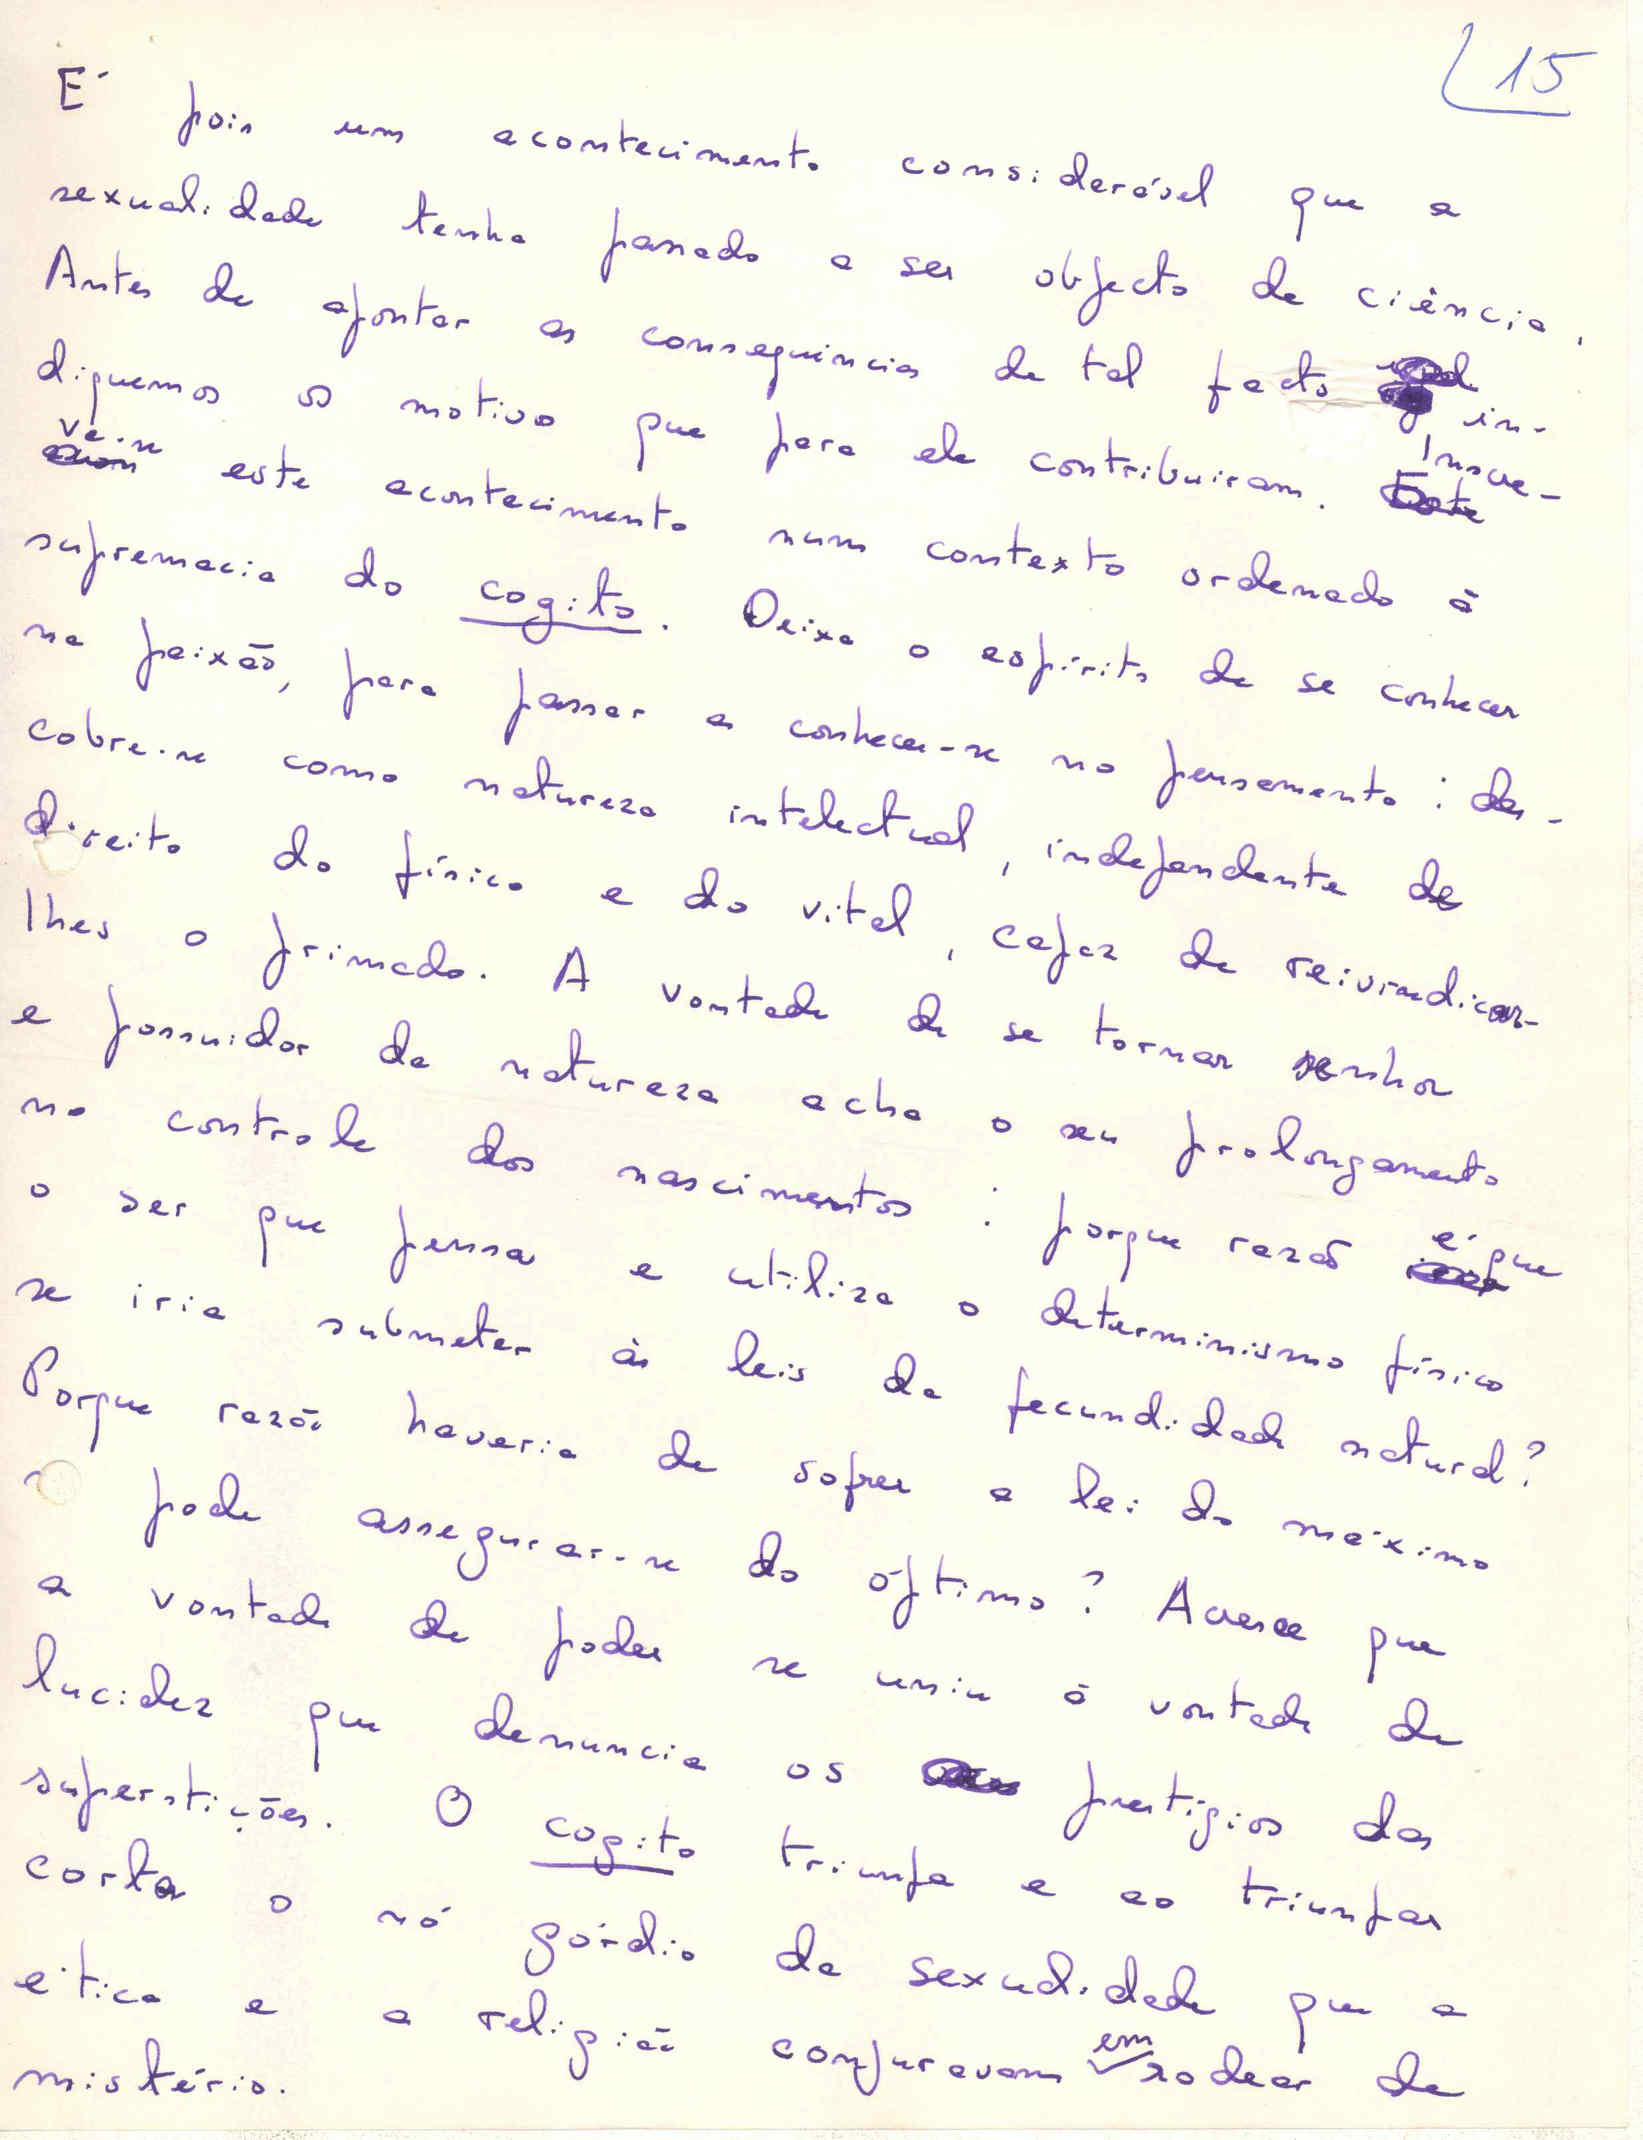 15
É pois um acontecimento considerável que a
sexualidade tenha passado a ser objecto de ciência.
Antes de apontar as consequências de tal facto in-
diquemos os motivos que para ele contribuiram. Inscre-
ve-se este acontecimento num contexto ordenado à
supremacia do cogito. Deixa o espírito de se conhecer
na paixão, para passar a conhecer-se no pensamento: des-
cobre-se como natureza intelectual, independente de
direito do físico e do vital, capaz de reivindicar-
lhes o primado. A vontade de se tornar senhor
e possuidor da natureza acha o seu prolongamento
no controle dos nascimentos: porque razão é que
o ser que pensa e utiliza o determinismo físico
se iria submeter às leis da fecundidade natural?
Porque razão haveria de sofrer a lei do máximo
pode assegurar-se do óptimo? Acresce que
a vontade de poder se uniu à vontade de
lucidez que denuncia os prestígios das
superstições. O cogito triunfa e ao triunfar
corta o nó górdio da sexualidade que a
ética e a religião conjuravam em rodear de
mistério.